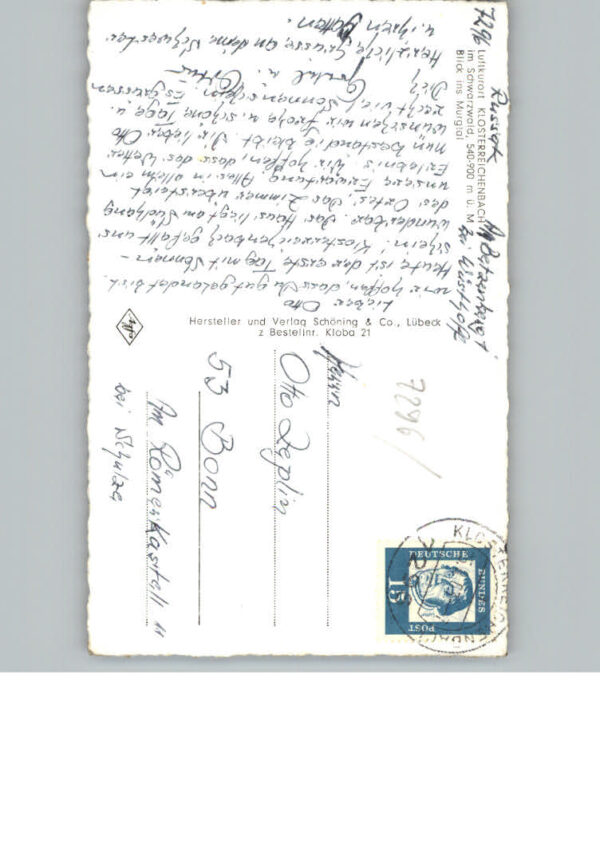 7296
Luftkurort KLOSTERREICHENBACH
im Schwarzwald, 540-900 m ü. M
Blick ins Murgtal
Lieber Otto
wir hoffen, dass Du gut gelandet bist.
Heute ist der erste Tag mit Sonnen-
schein. Klosterreichenbach gefällt uns
wunderbar. Das Haus liegt am Südhang
des Ortes, das Zimmer übersteigt
unsere Erwartung. Alles in allem ein
Erlebnis. Wir hoffen, dass das Wetter
nun Beständig bleibt. Dir lieber Otto
wünschen wir frohe u. schöne Tage u.
recht viel Sonnenschein. Es grüssen
Dich
u.
Herzliche Grüsse an deine Schwester
u. ihren Gatten.
Hersteller und Verlag Schöning & Co., Lübeck
z Bestellnr. Kloba 21
Herrn
Otto Zeplin
53 Bonn
Am Römerkastell
bei Schulze
7296/
DEUTSCHE
BUNDES
POST
15
KLOSTERREICHENBACH